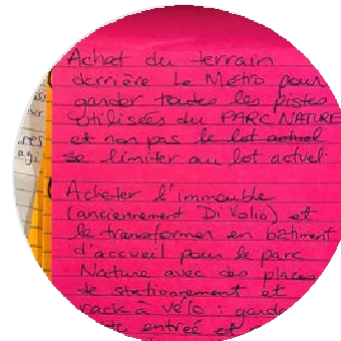 Achat du terrain
derrière Le Métro pour
garder toutes les pistes
utilisées du PARC NATURE
et non pas le lot actuel
se limiter au lot actuel.
Acheter l'immeuble
(anciennement Di Volio) et
le transformer en bâtiment
d'accueil pour le parc
Nature avec des places
de stationnement et
rack à vélo : garder
entrée et